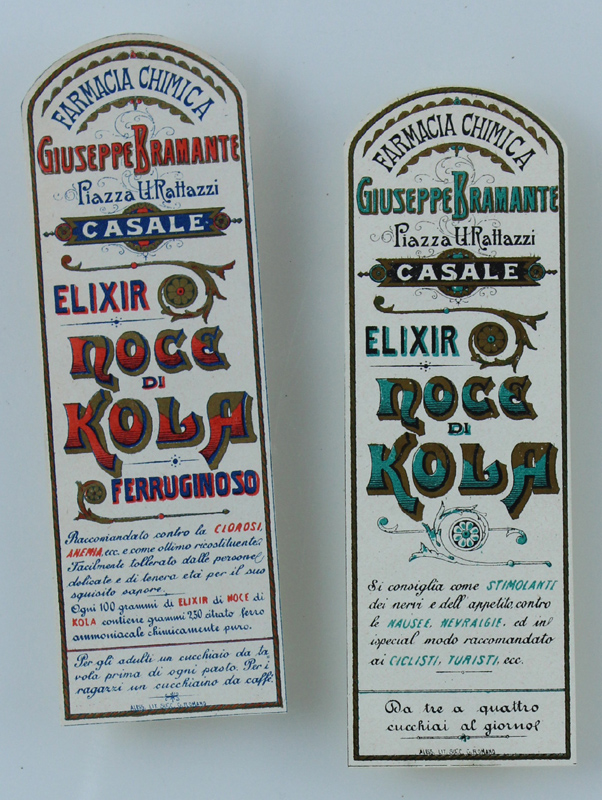 FARMACIA CHIMICA
GIUSEPPE BRAMANTE
Piazza U. Rattazzi
CASALE
ELIXIR
NOCE
DI
KOLA
FERRUGINOSO
Raccomandato contro la CLOROSI,
ANEMIA, ecc. e come ottimo ricostituente.
Facilmente tollerato dalle persone
delicate e di tenera età per il suo
squisito sapore.
Ogni 100 grammi di ELIXIR di NOCE di
KOLA contiene grammi 2,50 citrato ferro
ammoniacale chimicamente puro.
Per gli adulti un cucchiaio da ta
vola prima di ogni pasto. Per i
ragazzi un cucchiaino da caffè.
ALESS. LIT. SUCC. G. M. ROMANO
FARMACIA CHIMICA
GIUSEPPE BRAMANTE
Piazza U. Rattazzi
CASALE
ELIXIR
NOCE
DI
KOLA
Si consiglia come STIMOLANTE
dei nervi e dell'appetito, contro
le NAUSEE, NEVRALGIE, ed in
ispecial modo raccomandato
ai CICLISTI, TURISTI, ecc.
Da tre a quattro
cucchiai al giorno
ALESS. LIT. SUCC. G. M. ROMANO